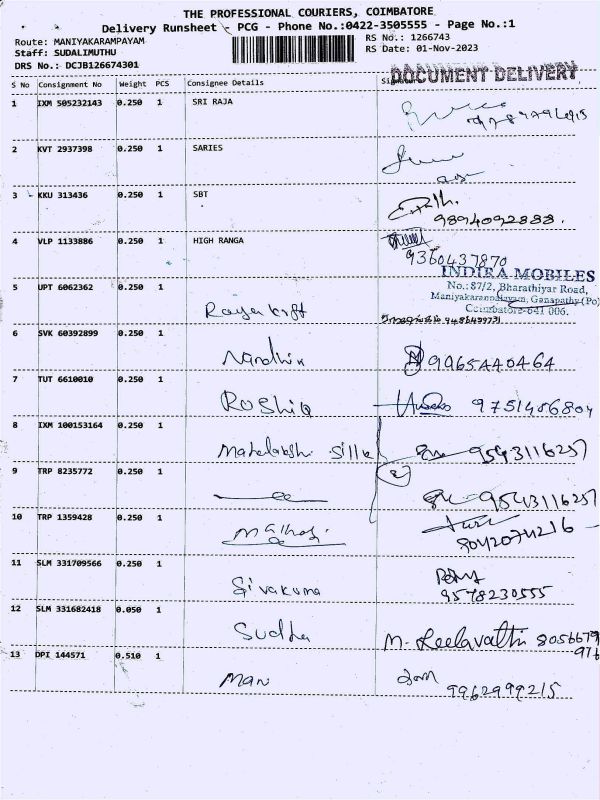 THE PROFESSIONAL COURIERS, COIMBATORE
Delivery Runsheet - PCG - Phone No.:0422-3505555 - Page No.:1
Route: MANIYAKARAMPAYAM
RS No.: 1266743
Staff: SUDALIMUTHU
RS Date: 01-Nov-2023
DRS No.: DCJB126674301
DOCUMENT DELIVERY
S No Consignment No Weight PCS Consignee Details
1 IXM 505232143 0.250 1 SRI RAJA
2 KVT 2937398 0.250 1 SARIES
3 KKU 313436 0.250 1 SBT
9894092888.
4 VLP 1133886 0.250 1 HIGH RANGA
9360437870
INDIRA MOBILES
No.:87/2, Bharathiyar Road,
Maniyakarampalayam, Ganapathy (Po)
Coimbatore-641 006.
5 UPT 6062362 0.250 1
6 SVK 60392899 0.250 1 Nandhin 9965440464
7 TUT 6610010 0.250 1 Roshiq 9751456804
8 IXM 100153164 0.250 1 Mahalakshi Silk 9543116257
9 TRP 8235772 0.250 1 9543116257
10 TRP 1359428 0.250 1
11 SLM 331709566 0.250 1 Sivakuma 9578230555
12 SLM 331682418 0.050 1 Sudha M. Leelavathi 8056679
916
13 DPI 144571 0.510 1 Man 9962999215